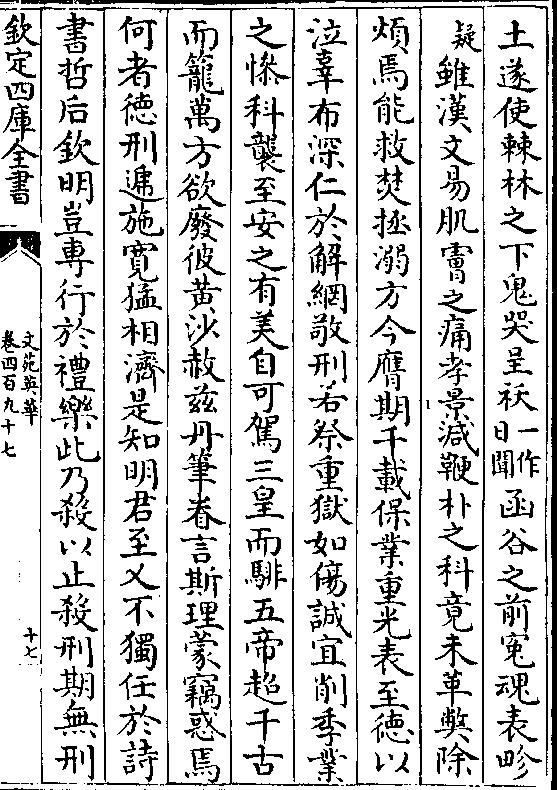 土遂使棘林之下鬼哭呈祅一作日聞函谷之前冤魂表畛
疑雖漢文易肌膚之痛孝景減鞭朴之科竟未革弊除
煩焉能救焚拯溺方今膺期千載保業重光表至德以
泣辜布深仁於解網敬刑若祭重獄如傷誠宜削季業
之慘科襲至安之有美自可駕三皇而騑五帝超千古
而籠萬方欲廢彼黃沙赦兹丹筆眷言斯理蒙竊惑焉
何者德刑遞施寛猛相濟是知明君至乂不獨任於詩
書哲后欽明豈専行於禮樂此乃殺以止殺刑期無刑
欽定四庫全書
文苑英華
卷四百九十七
十七